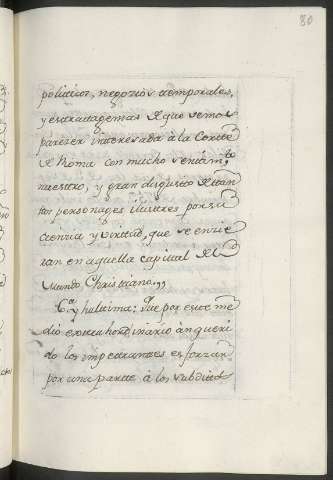 80
politicos, negozios temporales,
y estratagemas de que vemos
pareser interesada à la Corte
de Roma con mucho sentim.to
nuestro, y gran disgusto de tan
tos personages ilustres por su
ciencia y virtud, que se encie
ran en aquella capital del
Mundo Christiano,,
6.a y hultima: Que por este me
dio extrahordinario an queri
do los impetrantes esforzar
por una parte à los subditos